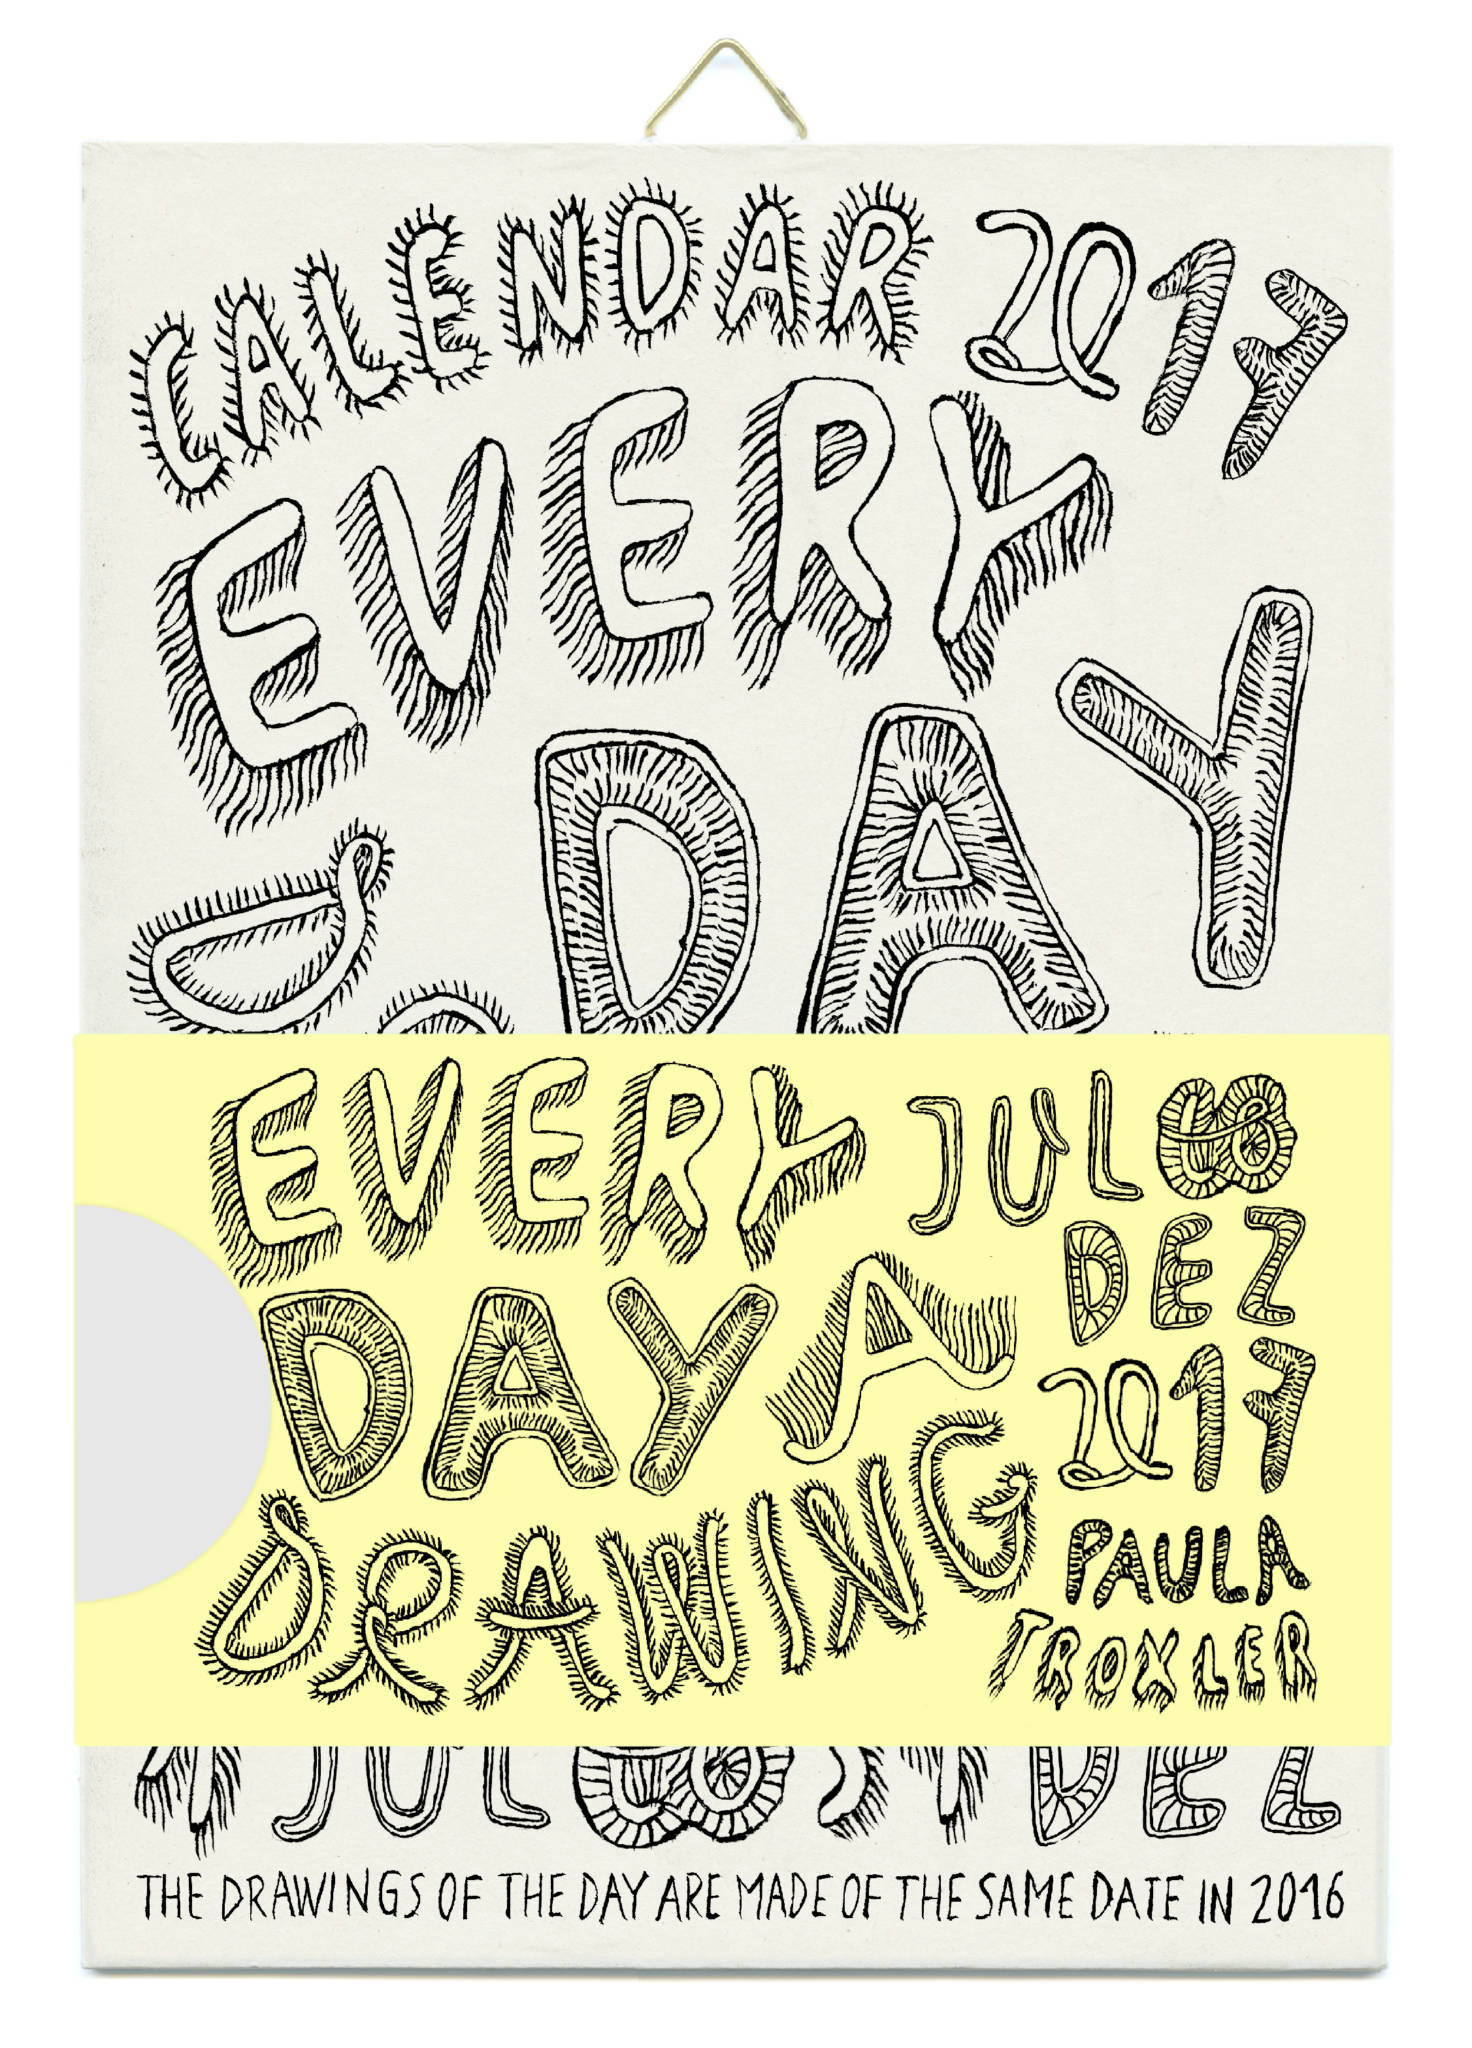 CALENDAR 2017
EVERY
DAY
EVERY JUL to
DAY A DEZ
2017
DRAWING PAULA
TROXLER
JUL to DEZ
THE DRAWINGS OF THE DAY ARE MADE OF THE SAME DATE IN 2016